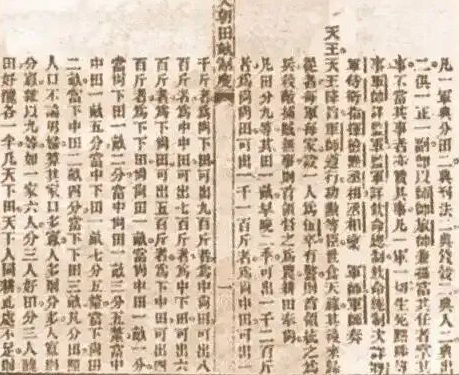 凡一軍典分田二典刑法二典錢穀二典入二典出
二俱一正一副即以師帥旅帥兼攝當其任者掌其
事不當其事者亦贊其事凡一軍一切生死黜陟等
事軍帥詳監軍監軍詳欽命總制欽命總制次詳將
軍侍衛指揮檢點丞相丞相稟 軍師軍師奏
天王天王降旨軍師遵行功勳等臣世食天祿其後來歸
從者每軍每家設一人為伍卒有警則首領統之為
兵殺敵捕賊無事則首領督之為農耕田奉尚
凡田分九等其田一畝早晚二季可出一千二百斤
者為尚尚田可出一千一百斤者為尚中田可出一
天朝田畝制度 一
千斤者為尚下田可出九百斤者為中尚田可出八
百斤者為中中田可出七百斤者為中下田可出六
百斤者為下尚田可出五百斤者為下中田可出四
百斤者為下下田尚尚田一畝當尚中田一畝一分
當尚下田一畝二分當中尚田一畝三分五釐當中
中田一畝五分當中下田一畝七分五釐當下尚田
二畝當下中田二畝四分當下下田三畝凡分田照
人口不論男婦算其家口多寡人多則分多人寡則
分寡雜以九等如一家六人分三人好田分三人醜
田好醜各一半凡天下田天下人同耕此處不足則